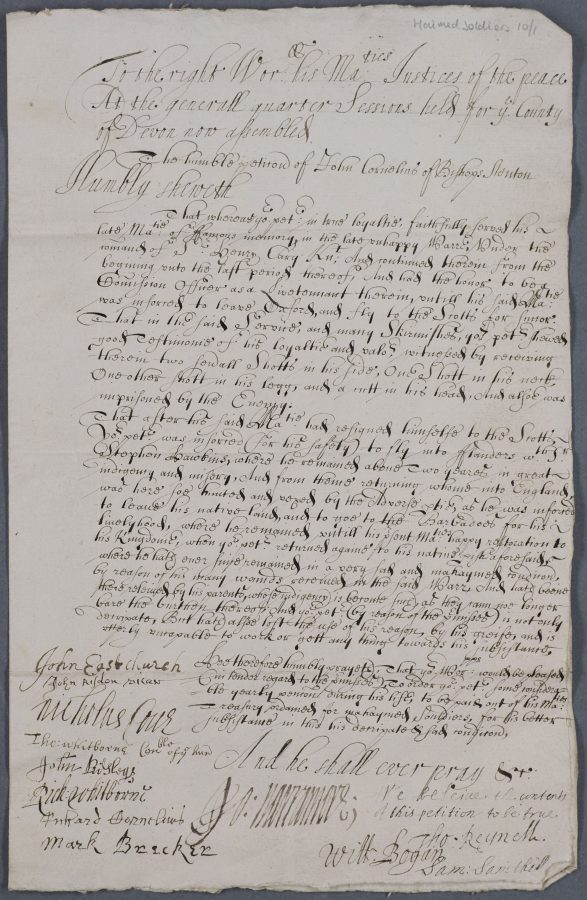 Maimed Soldiers 10/1
To the right Wor: & his Ma:ties Justices of the peace
At the generall quarter Sessions held for ye County
of Devon now assembled
The humble peticon of John Cornelius of Bishops Stenton
Humbly sheweth
That whereas yor petr: in true loyaltie, faithfully served his
late Matie: of ffamous memory, in the late unhappy Warr, Under the
comand of Sr: Henry Cary Knt: And continued therein from the
begining unto the last period thereof, And had the honor to be a
Comission Officer as a Livetennant therein, untill his said Matie:
was inforced to leave Oxford, and fly to the Scotts for
That in the said Service, and many Skirmishes, yor petr: shewed
good Testimonie of his loyaltie and valor, witnessed by receiving
therein two severall Shotts in his side, One Shott in his neck,
One other shott in his legg, and a cutt in his head, And alsoe was
imprisoned by the Enemy:
That after his said Matie had resigned himselfe to the Scotts,
Yor petr: was inforced (for his safety) to fly into fflanders wth Sr
Stephen Hawkins, where he remained above Two yeares in great
indigency and misery, And from thence returning whome into England
was here soe hunted and vexed by the Adverse as he was inforced
to leave his native land, and to goe to the Barbadoes for his
livelyhood, where he remained untill his psent Maties happy restoration to
his Kingdome, when yor petr: returned againe to his native aforesaid,
where he hath ever since remained in a very sad and mahaymed condicon,
by reason of his many wounds received in the said Warr, And hath beene
there releived by his parents, whose indigency is become such as they cann noe longer
bare the burthen thereof, And yor petr: (by reason of the p'misses) is not only
decripate, But hath alsoe lost the use of his reason, by his greife, and is
utterly uncapable to work or gett any thing towards his subsistance
Hee therefore humbly prayeth, That yor Worpps: would be pleased
(in tender regard to the p'misses) To order yor petr: some considera-
ble yearly pencon during his life, to be paid out of his Maties:
Treasury ordained for mahaymed Souldiers, for his better
subsistance in this his decripate & sad condicon,
And he shall ever pray &c:
John Eastchurch
John Risdon
Nicholas
Tho: Whitborne
John
Rich Whitborne
Richard Cornelius
Mark Bricker
Jo:
We beleive the contents
of this petition to be true
Tho: Reynell
Will: Bogan
Sam: